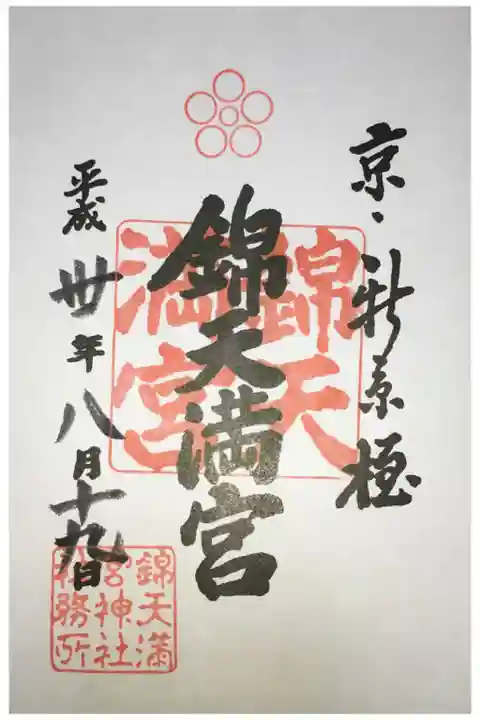 京・新京極
錦天満宮
錦天
満宮
平成卅年八月十九日
錦天満
宮神社
社務所